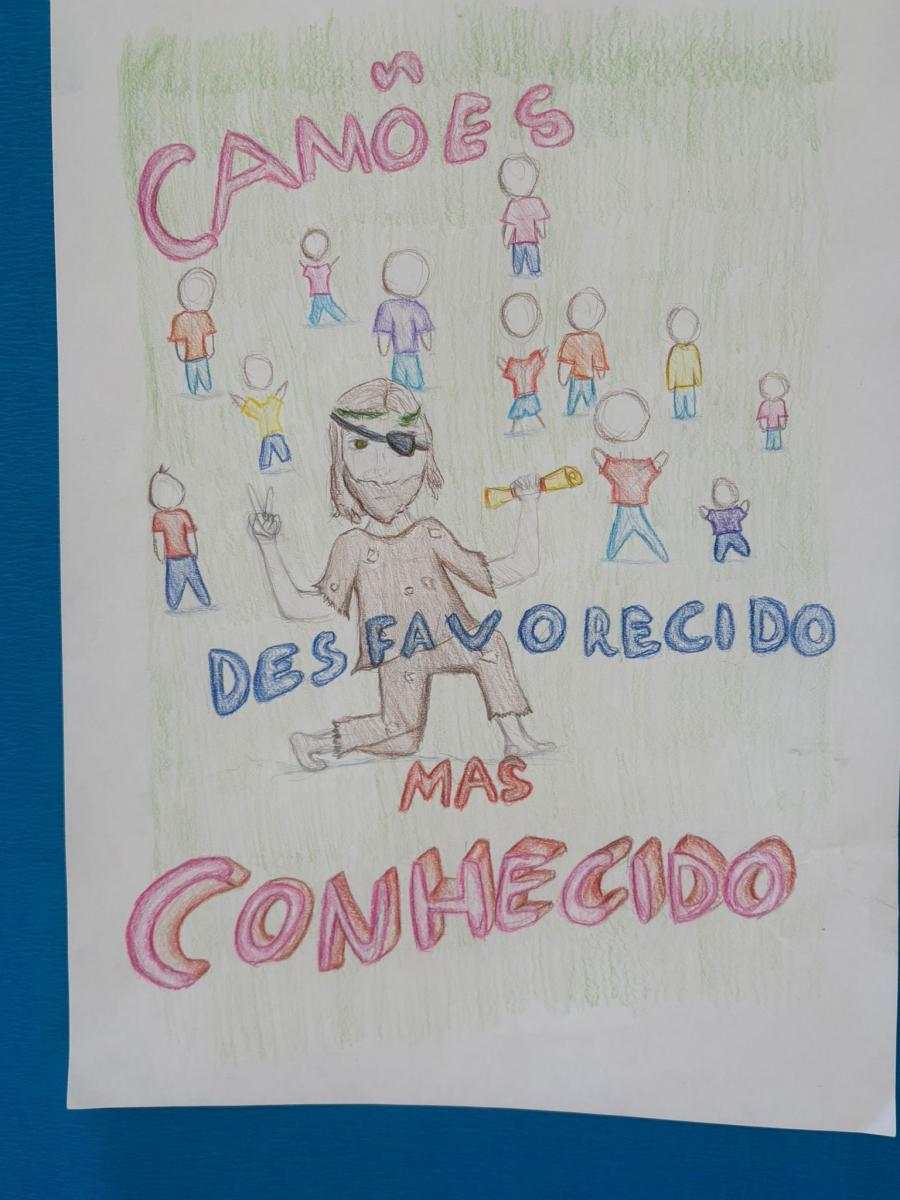 CAMÕES
DESFAVORECIDO
MAS
CONHECIDO